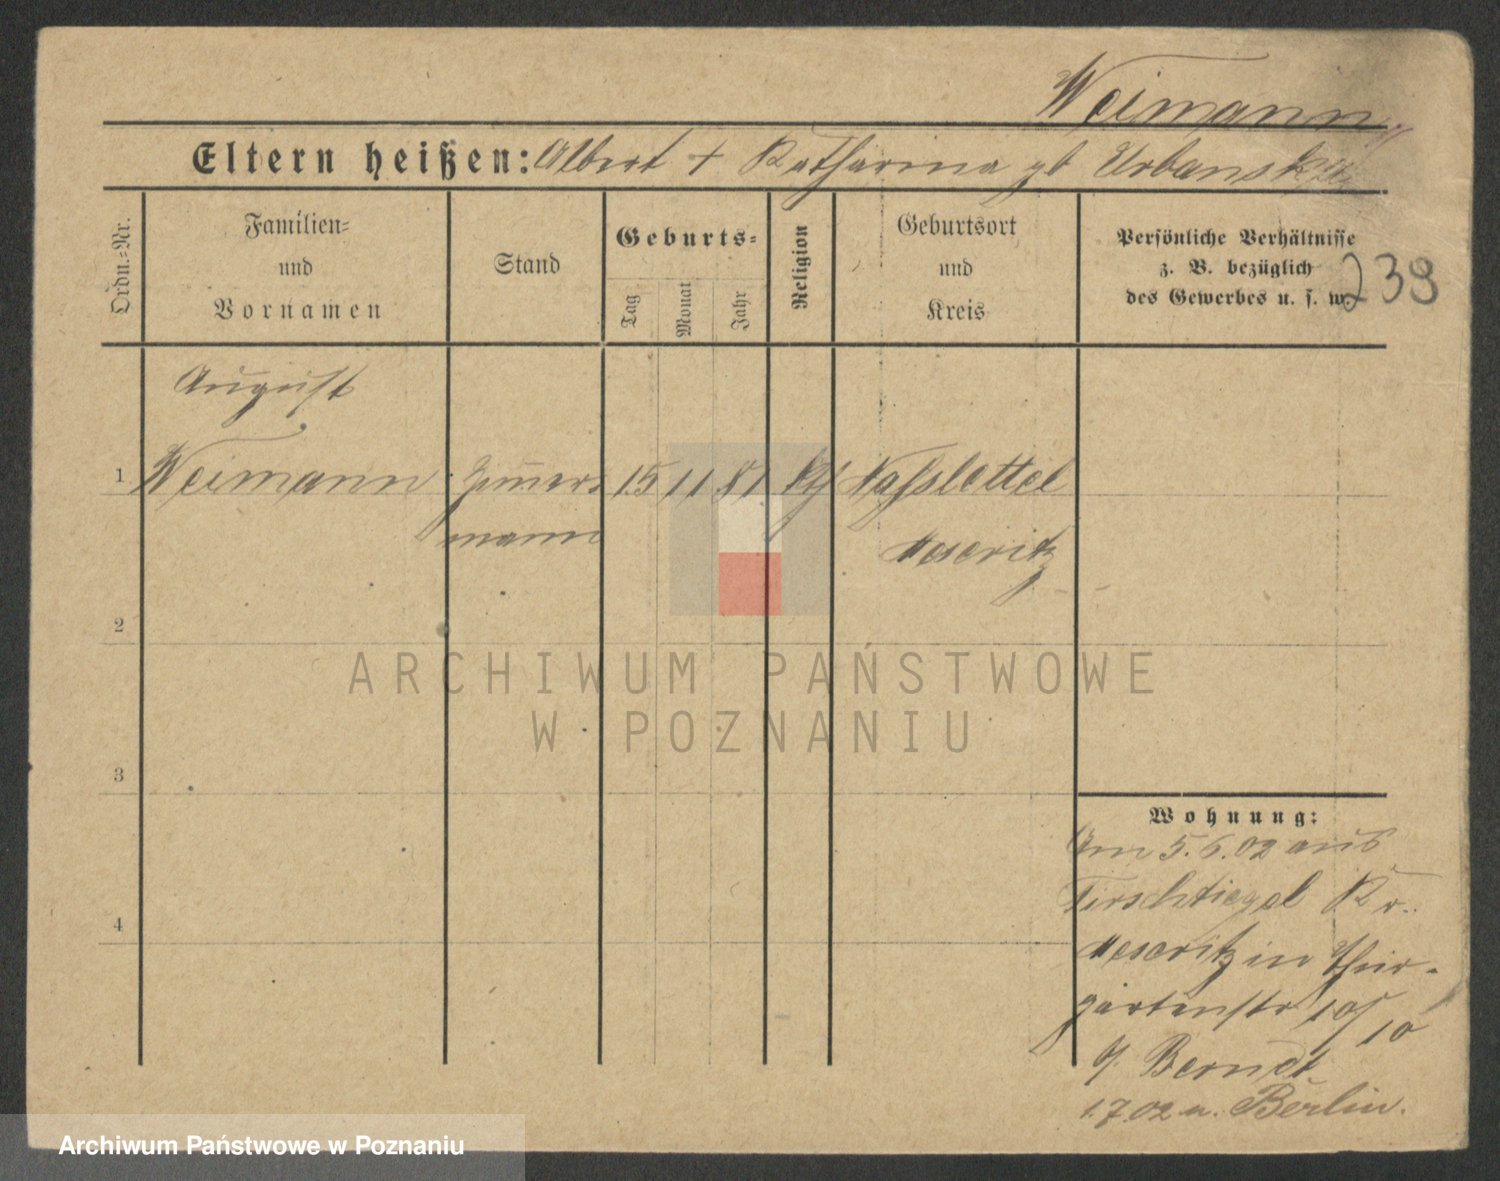 Weimann
Eltern heißen: Albert + Katharina gb Urbanska
Ordn.-Nr.
Familien-
und
Vornamen
Stand
Geburts-
Tag
Monat
Jahr
Religion
Geburtsort
und
Kreis
Persönliche Verhältnisse
z. B. bezüglich
des Gewerbes u. s. w.
239
August
1 Weimann Zimmer- 15 11 81 kth Nasslettel
mann Meseritz
2
ARCHIWUM PAŃSTWOWE
W POZNANIU
3
Wohnung:
Am 5.6.02 aus
Tirschtiegel Kr.
4
Meseritz in Thier-
gartenstr 10/
10
b/ Berndt
1.7.02 n. Berlin.
Archiwum Państwowe w Poznaniu